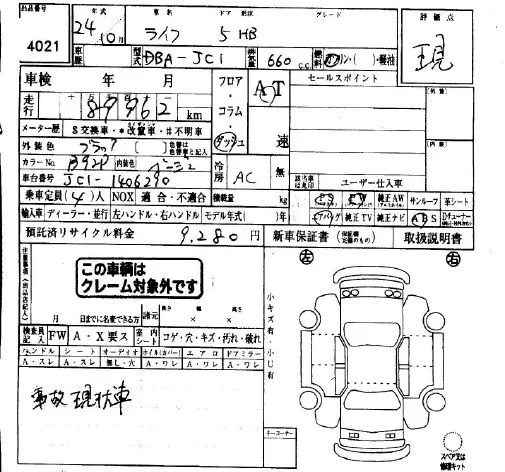 出品番号 4021
年式 24年10月
車名 ライフ
ドア 形状 5 HB
グレード
評価点 現
車歴
型式 DBA-JC1
排気量 660 c.c.
燃料 ガソリン・軽油
車検 年 月
フロア・コラム・ダッシュ
AT
速
セールスポイント
走行 89962 km
メーター歴 S交換車・*改竄車・#不明車
外装色 ブラック
カラーNo. B92P 内装色 ベージュ
車台番号 JC1-1406290
冷房 AC 無
ユーザー仕入車
乗車定員(4)人 NOX 適合・不適合 積載量 kg
PS PW 純正AW サンルーフ 革シート
輸入車 ディーラー・並行 左ハンドル・右ハンドル モデル年式( )年
エアバッグ 純正TV 純正ナビ ABS Dチューナー
預託済リサイクル料金 9,280円
新車保証書 取扱説明書
この車輌は
クレーム対象外です
左 右
月 日までに名変できる方
諸元 長さ 幅 高さ
検査員記入 FW A・X要ス 室内シート コゲ・穴・キズ・汚れ・破れ
ハンドル シート オーディオ ホイル(カバー) エアロ ドアミラー
A・スレ A・スレ 無し・穴 A・ワレ A・ワレ A・ワレ
小キズ有・小U有
事故現状車
キーコーナー
スペア又は
修理キット